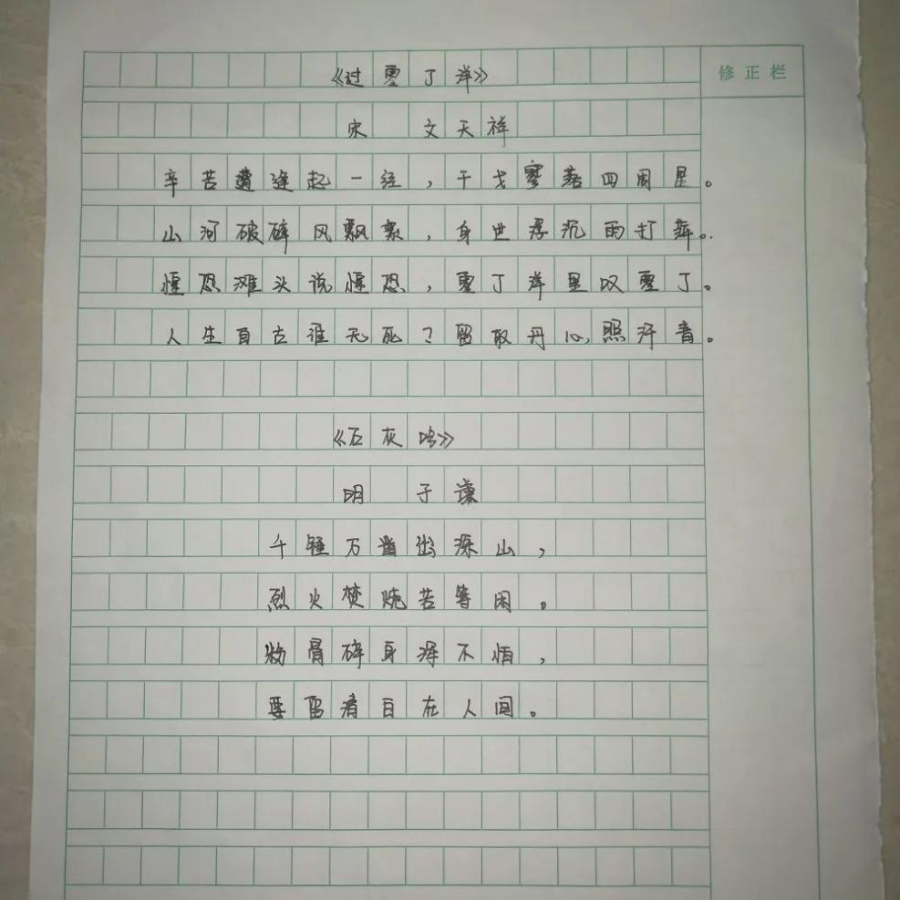 《过零丁洋》
修正栏
宋 文天祥
辛苦遭逢起一经,干戈寥落四周星。
山河破碎风飘絮,身世浮沉雨打萍。
惶恐滩头说惶恐,零丁洋里叹零丁。
人生自古谁无死?留取丹心照汗青。
《石灰吟》
明 于谦
千锤万凿出深山,
烈火焚烧若等闲。
粉骨碎身浑不怕,
要留清白在人间。